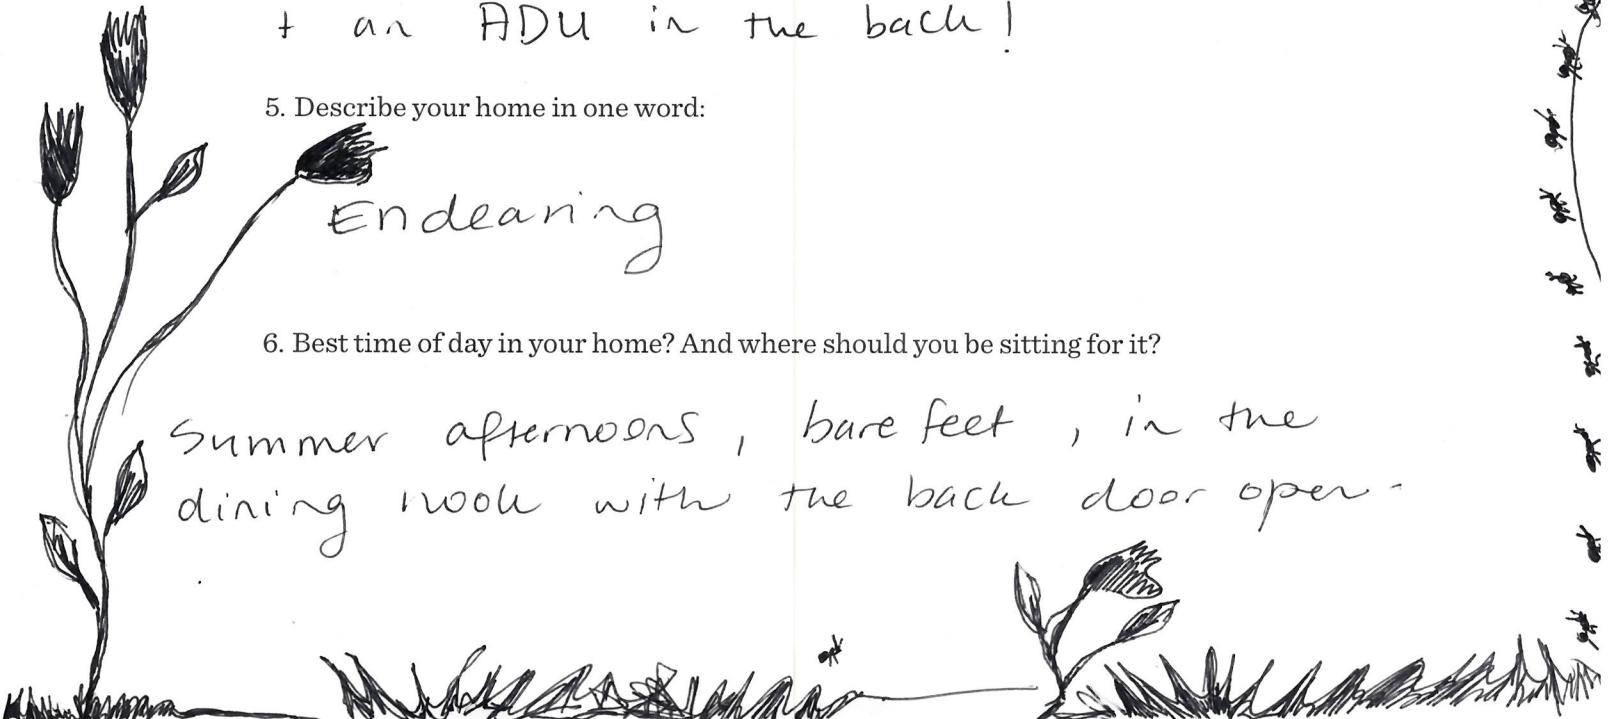 + an ADU in the back!
5. Describe your home in one word:
Endearing
6. Best time of day in your home? And where should you be sitting for it?
Summer afternoons, bare feet, in the
dining nook with the back door open.